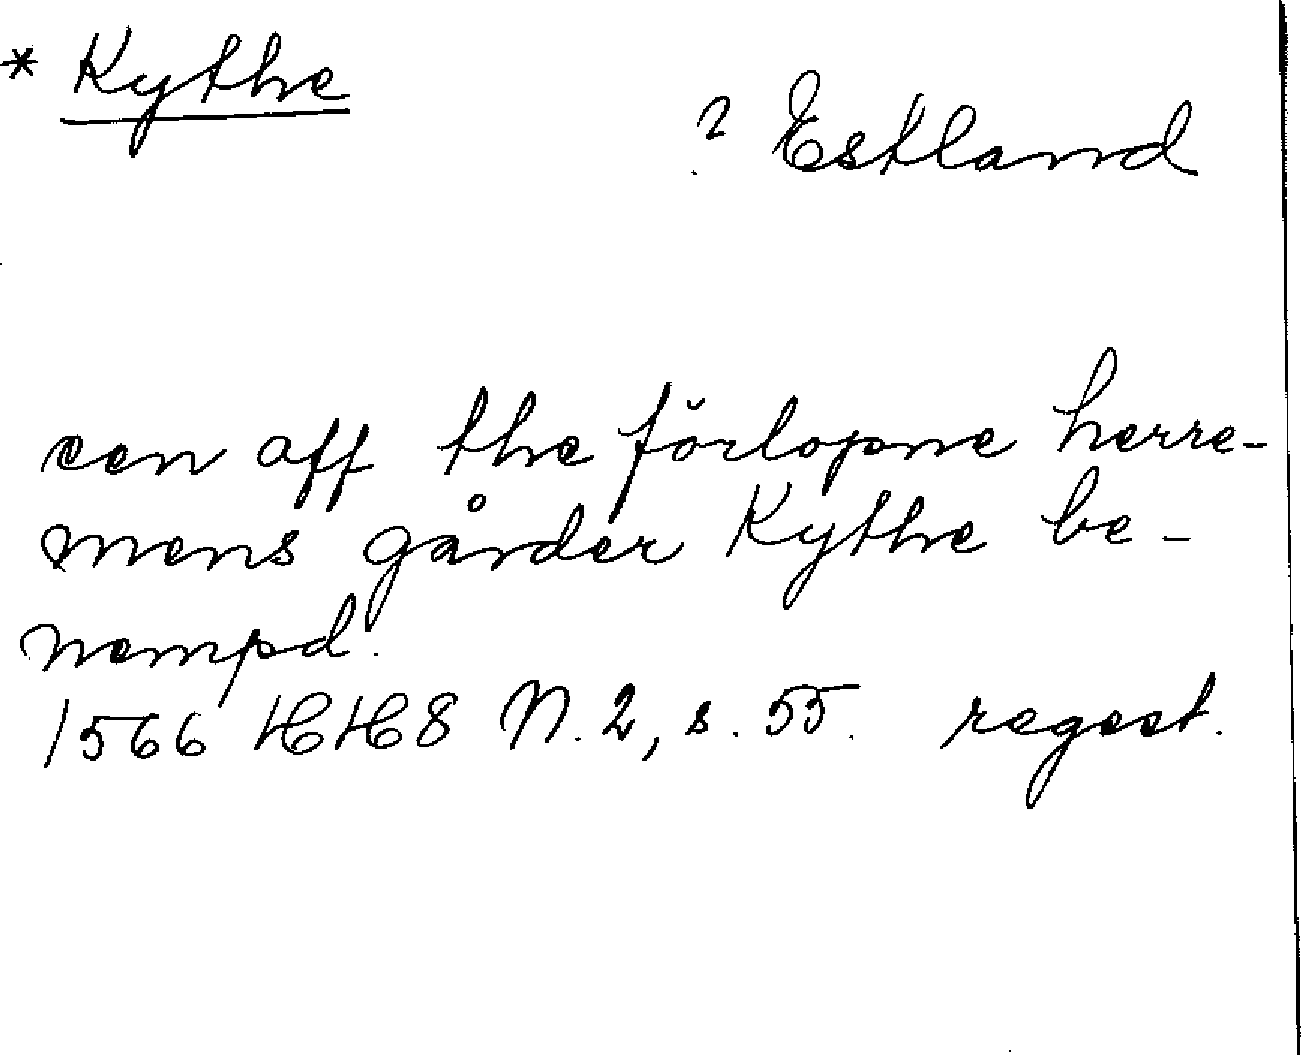 * Kythe
? Estland
een aff the förlopne herre-
mens gårder Kythe be-
nempd.
1566 HH8 N. 2, s. 55. regest.